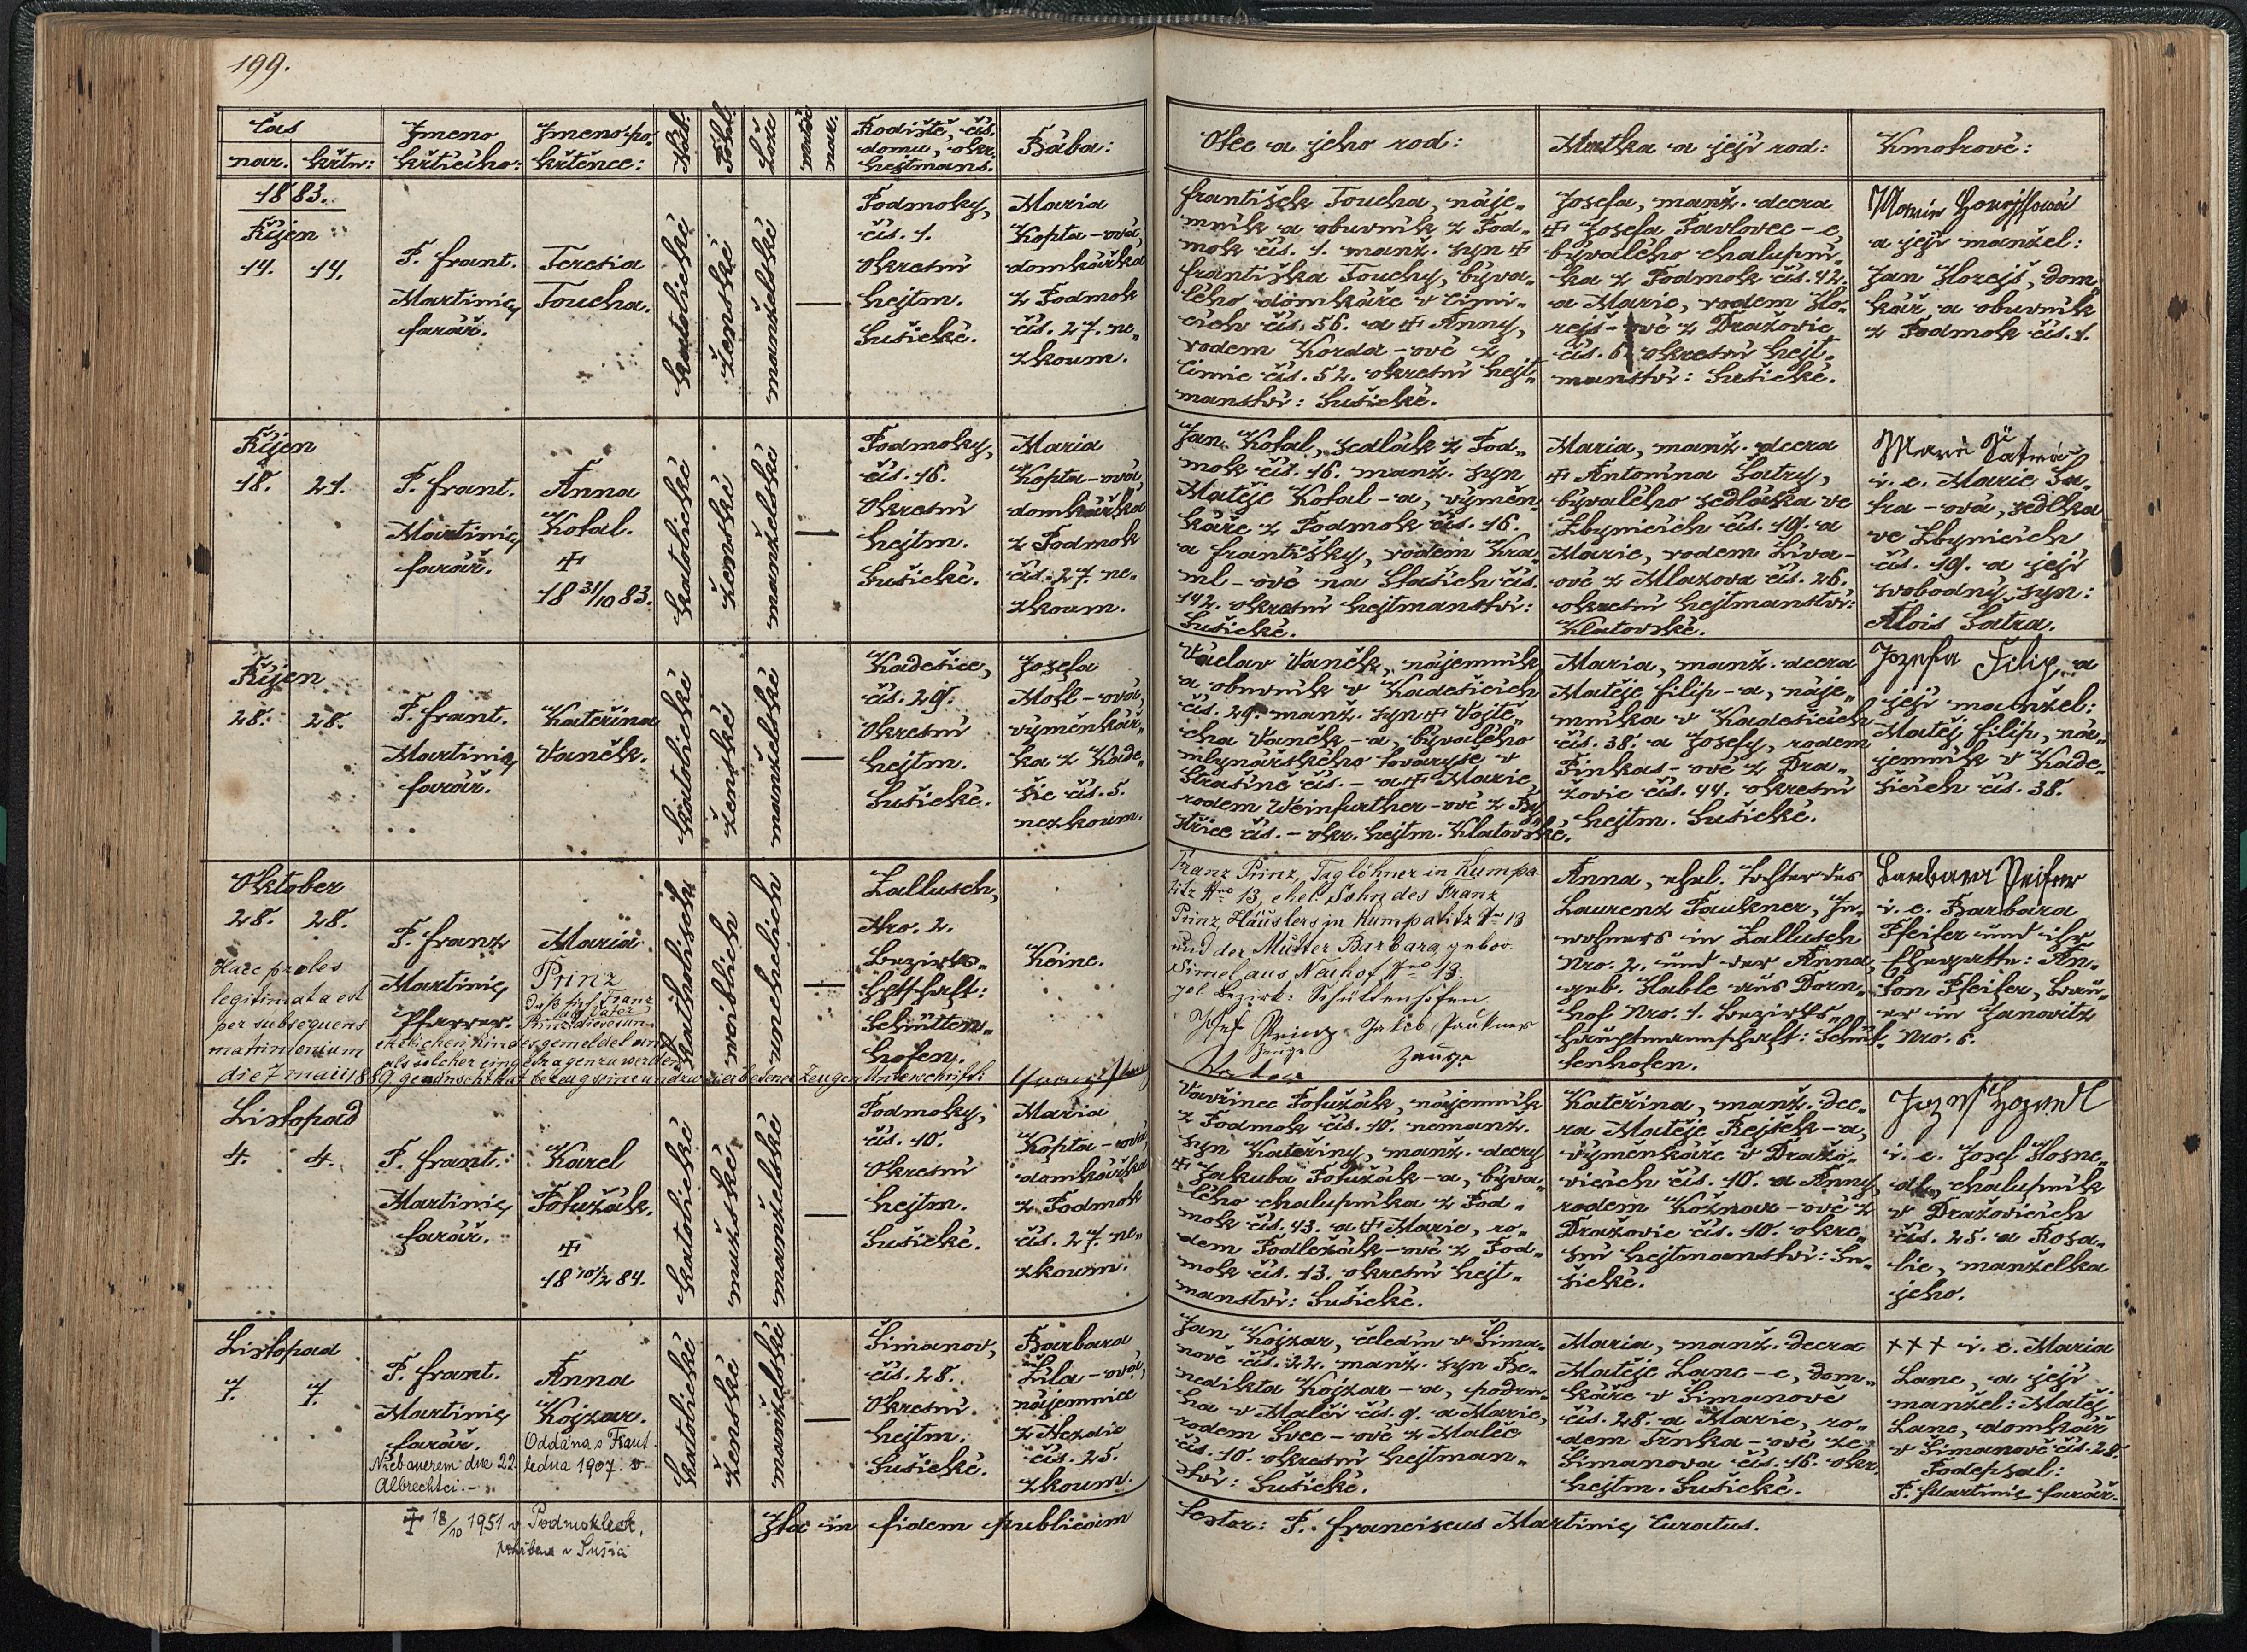 199.
čas
nar. křtn:
Jmeno
křtícího:
Jmeno po-
křtěnce:
Náb.
Pohl.
Lože
mrtvě
nar.
Rodiště, čís.
domu, okr.
hejtmans.
Bába:
Otec a jeho rod:
Matka a její rod:
Kmotrové:
1883.
Říjen
14. 14.
P. Frant.
Martinic,
farář.
Teresia
Toucha.
katolické
ženské
manželské
—
Podmoky,
čís. 1.
Okresní
hejtm.
Sušické.
Maria
Kopta-ová,
domkářka
z Podmok
čís. 27. ne-
zkoum.
František Toucha, náje-
mník a obuvník z Pod-
mok čís. 1. manž. syn +
Františka Touchy, býva-
lého domkáře v Čimi-
cích čís. 56. a + Anny,
rodem Korda-ové z
Čimic čís. 52. okresní hejt-
manství: Sušické.
Josefa, manž. dcera
+ Josefa Pavlovec-e,
bývalého chalupní-
ka z Podmok čís. 42.
a Marie, rodem Ho-
rejš-ové z Dražovic
čís. 6. okresní hejt-
manství: Sušické.
a její manžel:
Jan Horejš, dom-
kář a obuvník
z Podmok čís. 1.
Říjen
18. 21.
P. Frant.
Martinic,
farář.
Anna
Kotal.
+
18 31/10 83.
katolické
ženské
manželské
—
Podmoky,
čís. 16.
Okresní
hejtm.
Sušické.
Maria
Kopta-ová,
domkářka
z Podmok
čís. 27. ne-
zkoum.
Jan Kotal, sedlák z Pod-
mok čís. 16. manž. syn
Matěje Kotal-a, výměn-
káře z Podmok čís. 16.
a Františky, rodem Kra-
ml-ové na Vlaších čís.
142. okresní hejtmanství:
Sušické.
Maria, manž. dcera
+ Antonína Šatry,
bývalého sedláka ve
Zbynicích čís. 19. a
Marie, rodem Líva-
ové z Mlazova čís. 26.
okresní hejtmanství:
Klatovské.
i. e. Marie Ša-
tra-ová, sedlka
ve Zbynicích
čís. 19. a její
svobodný syn:
Alois Šatra.
Říjen
28. 28.
P. Frant.
Martinic,
farář.
Kateřina
Vaněk.
katolické
ženské
manželské
—
Kadešice,
čís. 29.
Okresní
hejtm.
Sušické.
Josefa
Motl-ová,
výměnkář-
ka z Kade-
šic čís. 5.
nezkoum.
Václav Vaněk, nájemník
a obuvník v Kadešicích
čís. 29. manž. syn + Vojtě-
cha Vaněk-a, bývalého
mlynářského tovaryše v
Strašíně čís. – a + Marie,
rodem Weinfurther-ové z By-
střice čís. – okr. hejtm. Klatovské.
Maria, manž. dcera
Matěje Filip-a, náje-
mníka v Kadešicích
čís. 38. a Josefy, rodem
Pinkas-ové z Dra-
žovic čís. 44. okresní
hejtm. Sušické.
Jozefa Filip, a
její manžel:
Matěj Filip, ná-
jemník v Kade-
šicích čís. 38.
Oktober
28. 28.
Haec proles
legitimata est
per subsequens
matrimonium
die 7 maii 1889.
P. Franz
Martinic,
Pfarrer.
Maria
Prinz
Daß sich Franz
Prinz als Vater
dieses un-
ehelichen Kindes gemeldet und
als solcher eingetragen zu werden
gewünscht hat bezeug seine und zwei erbetener Zeugen Unterschrift:
katholisch
weiblich
unehelich
—
Zallusch,
Nro. 2.
Bezirks-
htschaft:
Schütten-
hofen.
Keine.
Franz Prinz, Taglöhner in Kumpa-
titz Nro 13, ehel. Sohn des Franz
Prinz, Häuslers in Kumpatitz Nro 13
und der Mutter Barbara gebor.
Simel aus Neuhof Nro 13
pol. Bezirk: Schüttenhofen.
Zeuge
Zeuge
Vater
Anna, ehel. Tochter des
Laurenz Paukner, In-
wohners in Zallusch
Nro. 2. und der Anna,
geb. Hable aus Dorn-
hof Nro. 1. Bezirks-
hauptmannschaft: Schüt-
tenhofen.
Barbara Peifer
i. e. Barbara
Pfeifer und ihr
Ehegatte: An-
ton Pfeifer, Bau-
er in Janovitz
Nro. 6.
Listopad
4. 4.
P. Frant.
Martinic,
farář.
Karel
Potužák.
+
18 10/2 84.
katolické
mužské
manželské
—
Podmoky,
čís. 10.
Okresní
hejtm.
Sušické.
Maria
Kopta-ová,
domkářka
z Podmok
čís. 27. ne-
zkoum.
Vavřinec Potužák, nájemník
z Podmok čís. 10. nemanž.
syn Kateřiny, manž. dcery
+ Jakuba Potužák-a, býva-
lého chalupníka z Pod-
mok čís. 43. a + Marie, ro-
dem Podležák-ové z Pod-
mok čís. 13. okresní hejt-
manství: Sušické.
Kateřina, manž. dce-
ra Matěje Rejsek-a,
výmenkáře v Dražo-
vicích čís. 10. a Anny,
rodem Kožnar-ové z
Dražovic čís. 10. okre-
sní hejtmanství: Su-
šické.
i. e. Josef Hosne-
dl, chalupník
v Dražovicích
čís. 25. a Rosa-
lie, manželka
jeho.
Listopad
7. 7.
P. Frant.
Martinic,
farář.
Anna
Kojzar.
Oddána s Frant.
Niebauerem dne 22. ledna 1907. v
Albrechtci.-
katolické
ženské
manželské
—
Šimanov,
čís. 28.
Okresní
hejtm.
Sušické.
Barbara
Žíla-ová,
nájemnice
z Nezdic
čís. 25.
zkoum.
Jan Kojzar, čeledín v Šima-
nově čís. 22. manž. syn Be-
nedikta Kojzar-a, podru-
ha v Malči čís. 9. a Marie,
rodem Švec-ové z Malče
čís. 10. okresní hejtman-
ství: Sušické.
Maria, manž. dcera
Matěje Lanc-e, dom-
káře v Šimanově
čís. 28. a Marie, ro-
dem Trnka-ové ze
Šimanova čís. 16. okr.
hejtm. Sušické.
+++ i. e. Maria
Lanc, a její
manžel: Matěj
Lanc, domkář
v Šimanově čís. 28.
Podepsal:
P. F. Martinic farář.
+ 18/10 1951 v Podmoklech,
pohřbena v Sušici
Ita in fidem publicam
testor: P. Franciscus Martinic, Curatus.